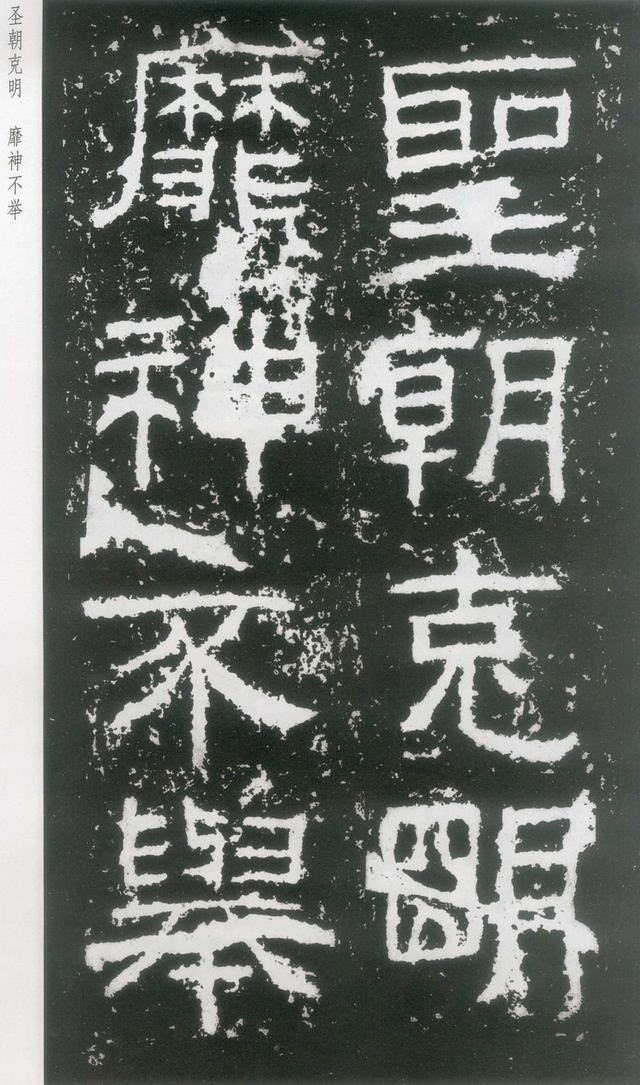 聖朝克明
靡神不舉
圣朝克明　靡神不举